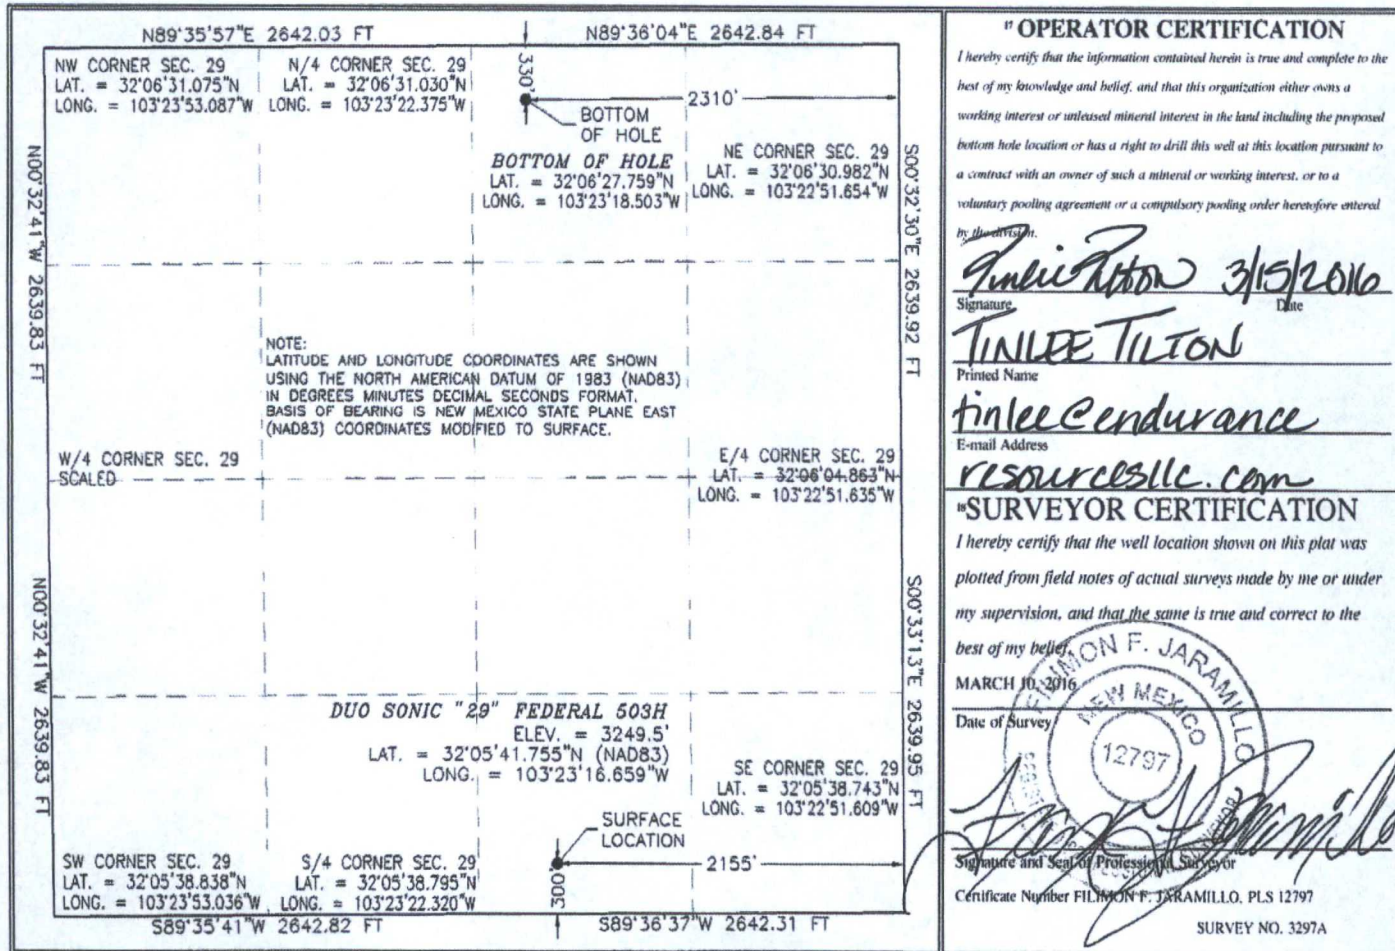 N89°35'57"E 2642.03 FT
N89°36'04"E 2642.84 FT
NW CORNER SEC. 29
LAT. = 32°06'31.075"N
LONG. = 103°23'53.087"W
N/4 CORNER SEC. 29
LAT. = 32°06'31.030"N
LONG. = 103°23'22.375"W
330'
2310'
BOTTOM
OF HOLE
BOTTOM OF HOLE
LAT. = 32°06'27.759"N
LONG. = 103°23'18.503"W
NE CORNER SEC. 29
LAT. = 32°06'30.982"N
LONG. = 103°22'51.654"W
N00°32'41"W 2639.83 FT
S00°32'30"E 2639.92 FT
NOTE:
LATITUDE AND LONGITUDE COORDINATES ARE SHOWN
USING THE NORTH AMERICAN DATUM OF 1983 (NAD83)
IN DEGREES MINUTES DECIMAL SECONDS FORMAT.
BASIS OF BEARING IS NEW MEXICO STATE PLANE EAST
(NAD83) COORDINATES MODIFIED TO SURFACE.
W/4 CORNER SEC. 29
SCALED
E/4 CORNER SEC. 29
LAT. = 32°06'04.863"N
LONG. = 103°22'51.635"W
N00°32'41"W 2639.83 FT
S00°33'13"E 2639.95 FT
DUO SONIC "29" FEDERAL 503H
ELEV. = 3249.5'
LAT. = 32°05'41.755"N (NAD83)
LONG. = 103°23'16.659"W
SE CORNER SEC. 29
LAT. = 32°05'38.743"N
LONG. = 103°22'51.609"W
SURFACE
LOCATION
2155'
300'
SW CORNER SEC. 29
LAT. = 32°05'38.838"N
LONG. = 103°23'53.036"W
S/4 CORNER SEC. 29
LAT. = 32°05'38.795"N
LONG. = 103°23'22.320"W
S89°35'41"W 2642.82 FT
S89°36'37"W 2642.31 FT
17 OPERATOR CERTIFICATION
I hereby certify that the information contained herein is true and complete to the
best of my knowledge and belief, and that this organization either owns a
working interest or unleased mineral interest in the land including the proposed
bottom hole location or has a right to drill this well at this location pursuant to
a contract with an owner of such a mineral or working interest, or to a
voluntary pooling agreement or a compulsory pooling order heretofore entered
by the division.
Tinlee Tilton 3/15/2016
Signature Date
TINLEE TILTON
Printed Name
tinlee@endurance
E-mail Address
resourcesllc.com
18 SURVEYOR CERTIFICATION
I hereby certify that the well location shown on this plat was
plotted from field notes of actual surveys made by me or under
my supervision, and that the same is true and correct to the
best of my belief.
MARCH 10, 2016
Date of Survey
FILIMON F. JARAMILLO
NEW MEXICO
12797
Signature and Seal of Professional Surveyor
Certificate Number FILIMON F. JARAMILLO, PLS 12797
SURVEY NO. 3297A